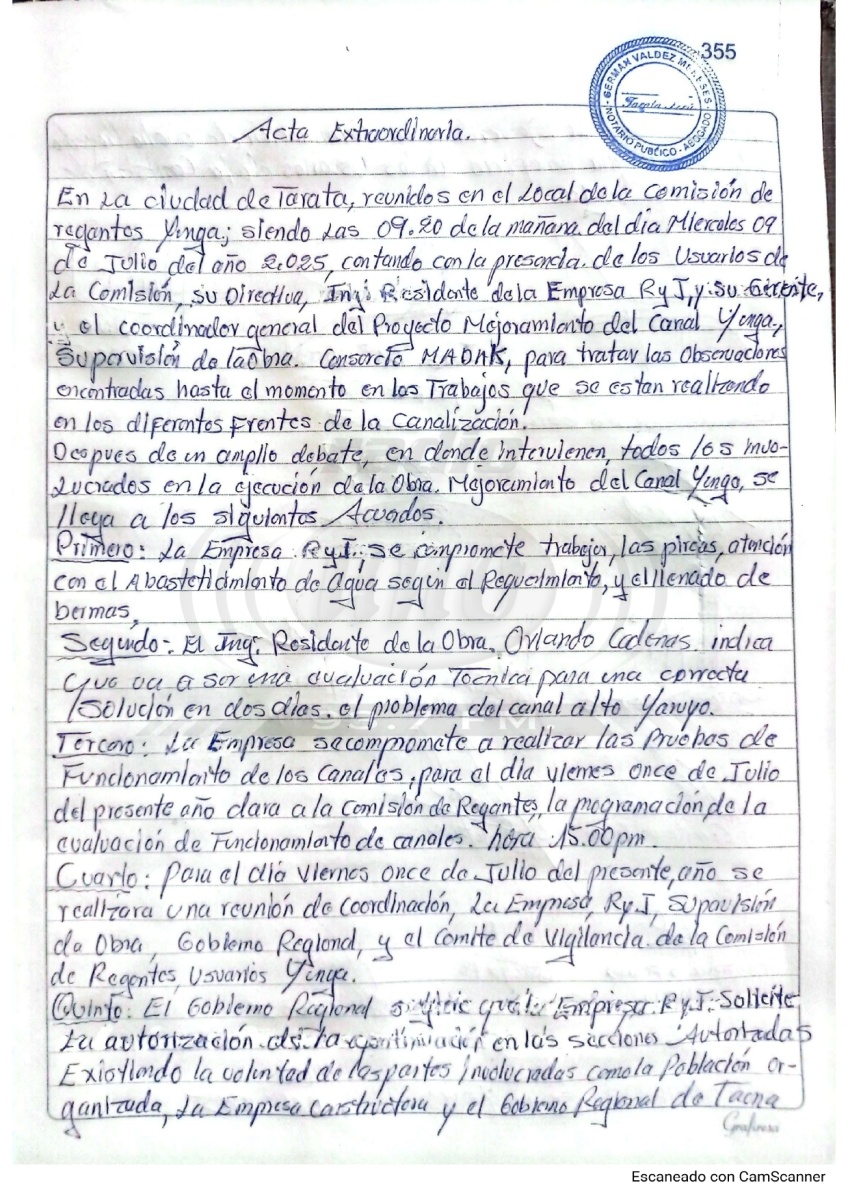 355
GERMAN VALDEZ MENESES
Tacna - Perú
NOTARIO PUBLICO - ABOGADO
Acta Extraordinaria.
En La ciudad de Tarata, reunidos en el Local de la Comisión de
regantes Yunga; siendo Las 09.20 de la mañana del dia Miercoles 09
de Julio del año 2.025, contando con la presencia de los Usuarios de
La Comisión, su Directiva, Ing: Residente de la Empresa R y J, y su Gerente,
y el coordinador general del Proyecto Mejoramiento del Canal Yunga,
Supervisión de la Obra. Consorcio MADAK, para tratar las Observaciones
encontradas hasta el momento en los Trabajos que se estan realizando
en los diferentes Frentes de la Canalización.
Despues de un amplio debate, en donde intervienen, todos los invo-
Lucrados en la ejecución de la Obra. Mejoramiento del Canal Yunga, se
llega a los siguientes Acuerdos.
Primero: La Empresa R y J, se compromete trabajos, las pircas, atención
con el Abastecimiento de Agua según el Requerimiento, y el llenado de
bermas,
Segundo:- El Ing: Residente de la Obra, Orlando Cadenas indica
Que va a ser una evaluación Tecnica para una correcta
solución en dos dias. el problema del canal alto Yaruyo.
Tercero: La Empresa se compromete a realizar las Pruebas de
Funcionamiento de los Canales, para el dia viernes once de Julio
del presente año dara a la Comisión de Regantes, la programación de la
evaluación de Funcionamiento de canales. hora 15.00 pm.
Cuarto: Para el dia Viernes once de Julio del presente, año se
realizara una reunión de Coordinación, La Empresa, R y J, Supervisión
de Obra, Gobierno Regional, y el Comite de Vigilancia de la Comisión
de Regantes, Usuarios Yunga.
Quinto: El Gobierno Regional Empresa R y J. Solicite
La autorización de la continuación en las secciones Autorizadas
Existiendo la voluntad de las partes involucradas como la Población or-
ganizada, La Empresa Constructora y el Gobierno Regional de Tacna
Escaneado con CamScanner